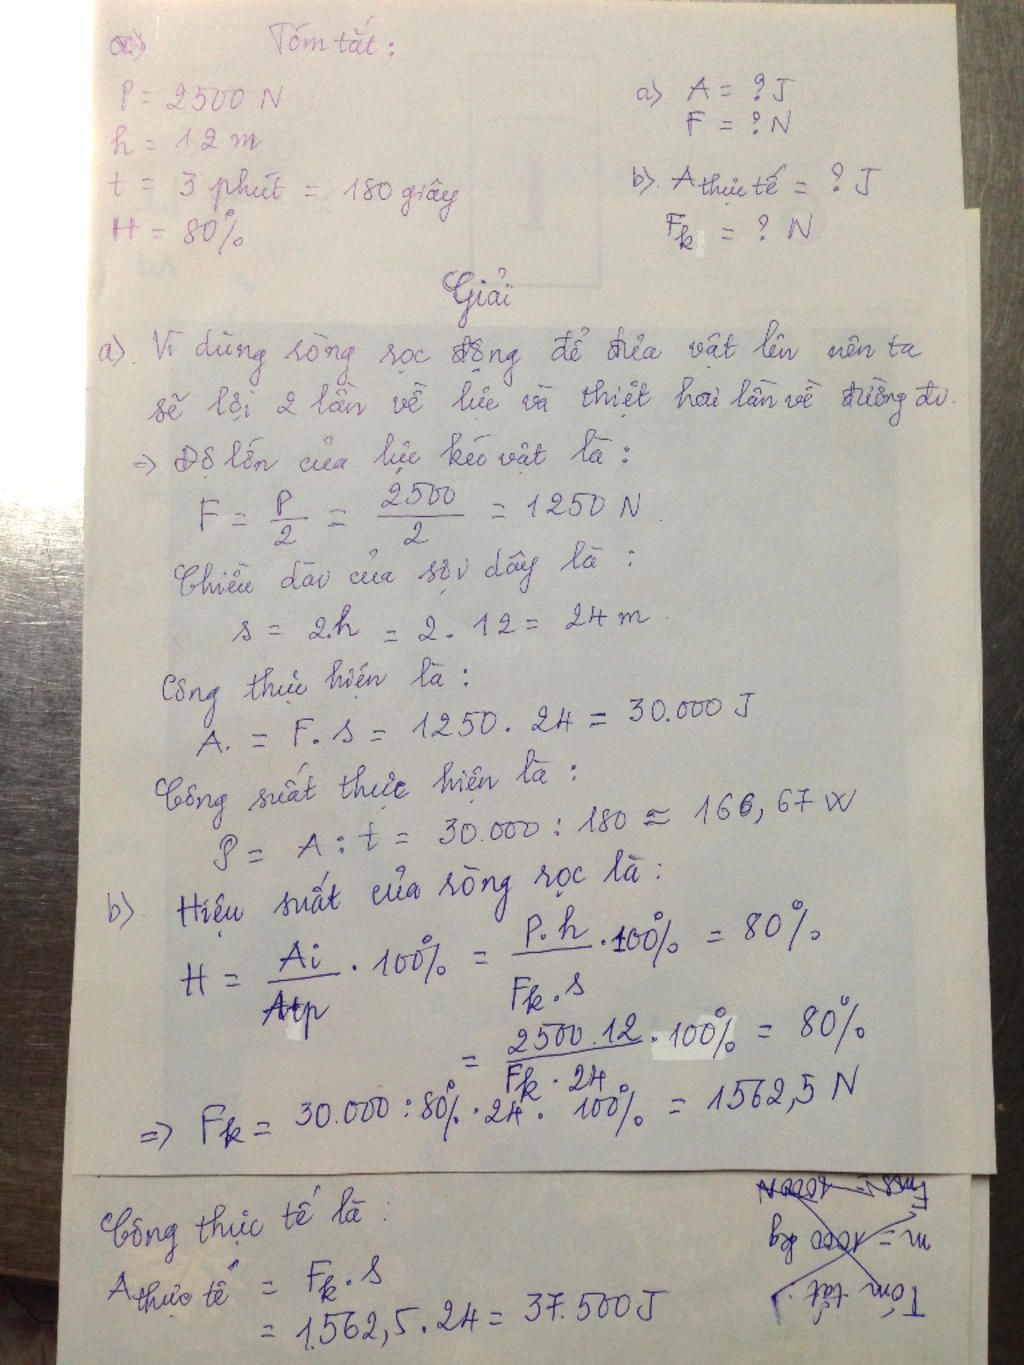 a) Tóm tắt:
P = 2500 N
h = 12 m
t = 3 phút = 180 giây
H = 80%
a) A = ? J
F = ? N
b) A thực tế = ? J
Fk = ? N
Giải
a) Vì dùng ròng rọc động để đưa vật lên nên ta
sẽ lợi 2 lần về lực và thiệt hai lần về đường đi.
=> Độ lớn của lực kéo vật là:
F = P/2 = 2500/2 = 1250 N
Chiều dài của sợi dây là:
s = 2.h = 2. 12 = 24 m
Công thực hiện là:
A. = F. s = 1250. 24 = 30.000 J
Công suất thực hiện là:
P = A : t = 30.000 : 180 ≈ 166,67 W
b) Hiệu suất của ròng rọc là:
H = Ai/Atp . 100% = P.h/Fk.s .100% = 80%
= 2500.12/Fk.24 .100% = 80%
=> Fk = 30.000 : 80% . 24 . 100% = 1562,5 N
Công thực tế là:
A thực tế = Fk . s
= 1.562,5 . 24 = 37.500 J
Tóm tắt:
m = 1000 kg